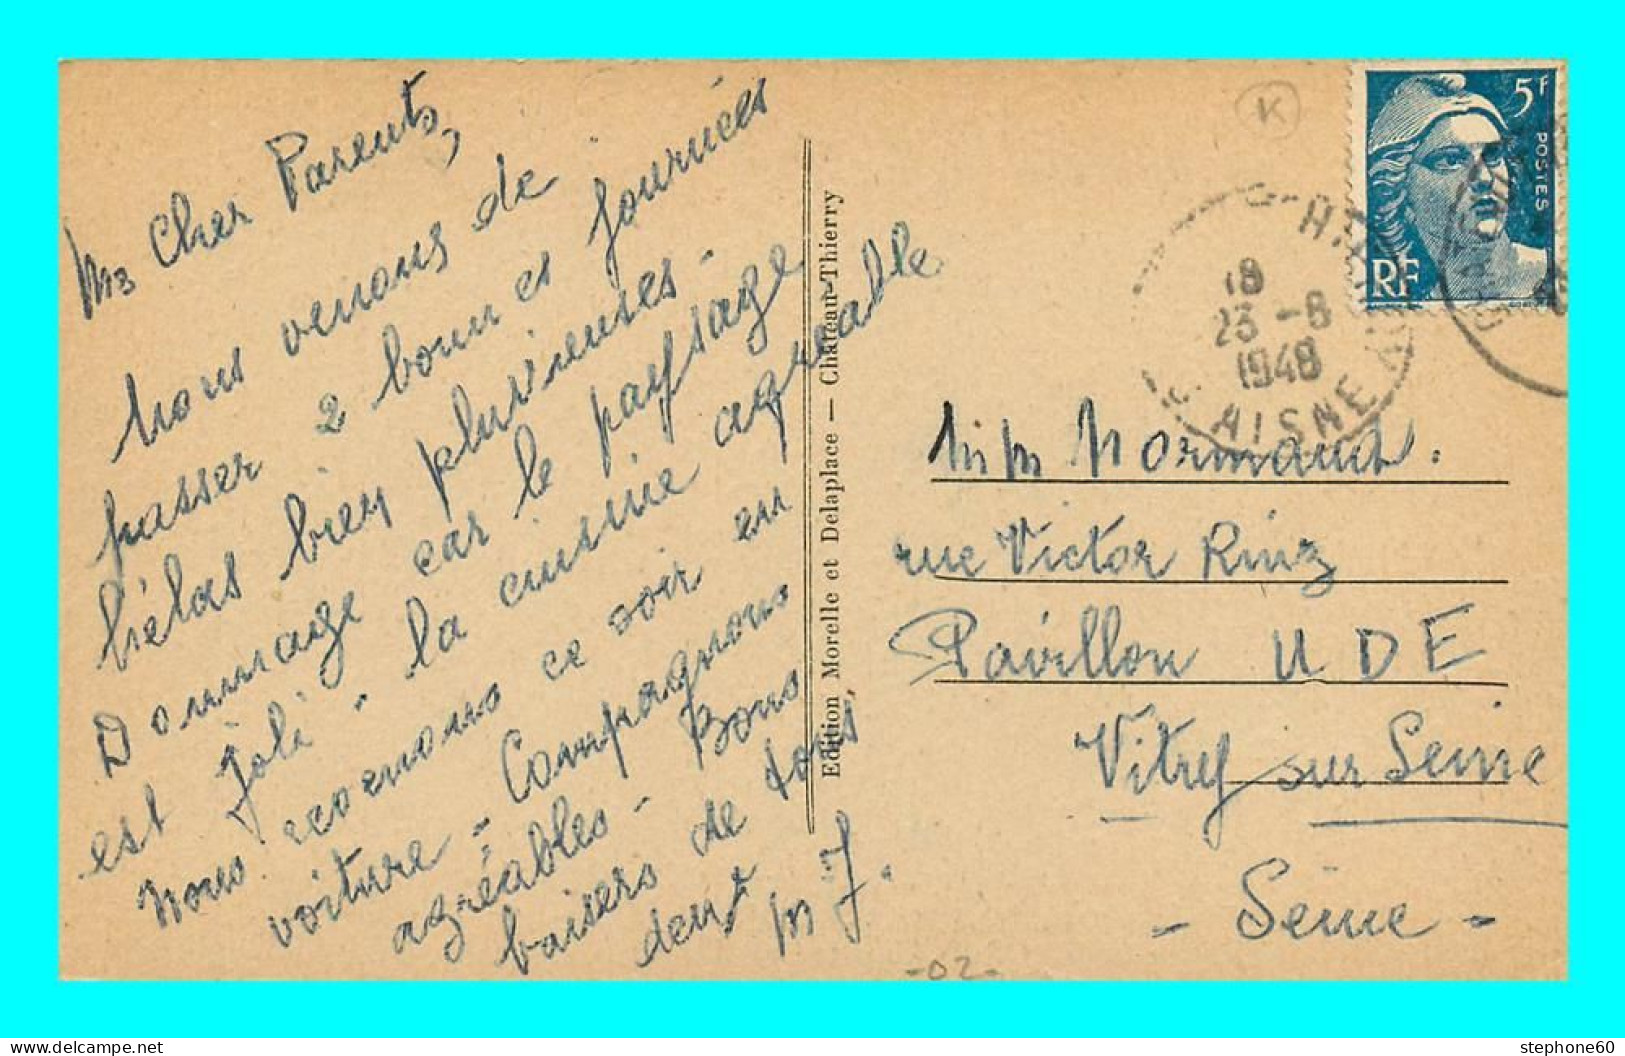 Mes Cher Parents,
nous venons de
passer 2 bonnes journées
hélas bien pluvieuses -
Dommage car le paysage
est joli - la cuisine agréable
Nous revenons ce soir en
voiture - Compagnons
agréables - Bons
baisers de tous
deux
M J.
Edition Morelle et Delaplace — Château-Thierry
K
5F
POSTES
RF
18
23 -8
1948
AISNE
Normand.
rue Victor
Pavillon U D E
Vitry sur Seine
- Seine -
-02-
stephone60